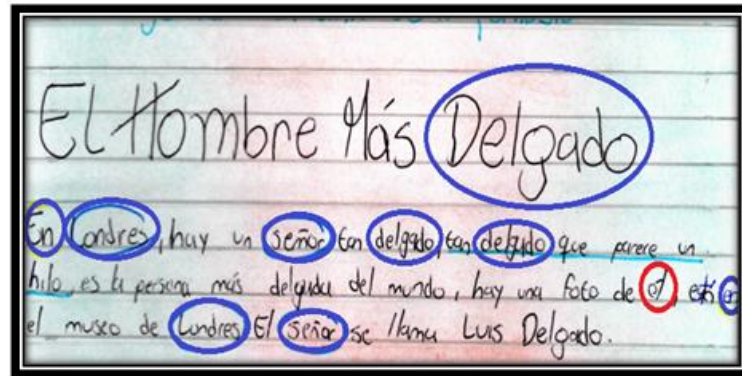 El Hombre Más Delgado
En Londres, hay un señor tan delgado, tan delgado que parece un
hilo, es la persona más delgada del mundo, hay una foto de él, está en
el museo de Londres El señor se llama Luis Delgado.